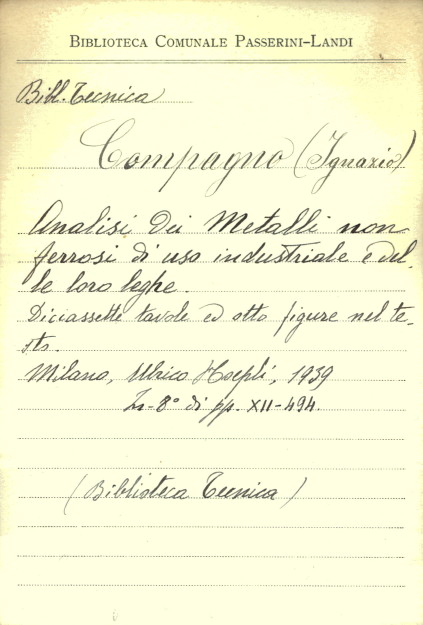 BIBLIOTECA COMUNALE PASSERINI-LANDI
Bibl. Tecnica
Compagno (Ignazio)
Analisi dei Metalli non
ferrosi di uso industriale e del-
le loro leghe.
Diciassette tavole ed otto figure nel te-
sto.
Milano, Ulrico Hoepli, 1939
In-8° di pp. XII-494.
(Biblioteca Tecnica)